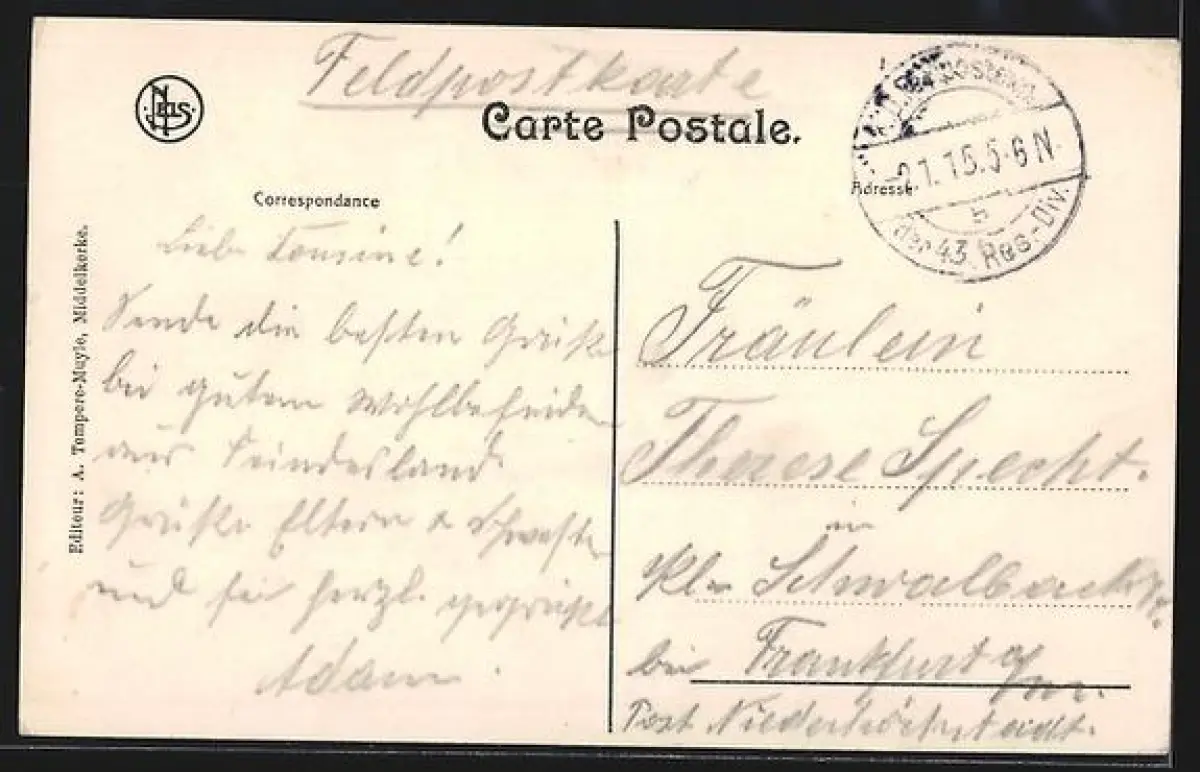 Feldpostkarte
Carte Postale.
NELS
der 43. Res.-Div.
21.1.15.5-6N.
b
Correspondance
Adresse
Editeur: A. Tempere-Muyle, Middelkerke.
Liebe Cousine!
Sende die besten Grüße
bei gutem Wohlbefinden
aus Feindesland.
Grüße Eltern & Schwester
und sei herzl. gegrüßt
Adam.
Fräulein
Therese Specht.
in
Kl. Schwalbach
bei Frankfurt a/m.
Post Niederhöchstadt.